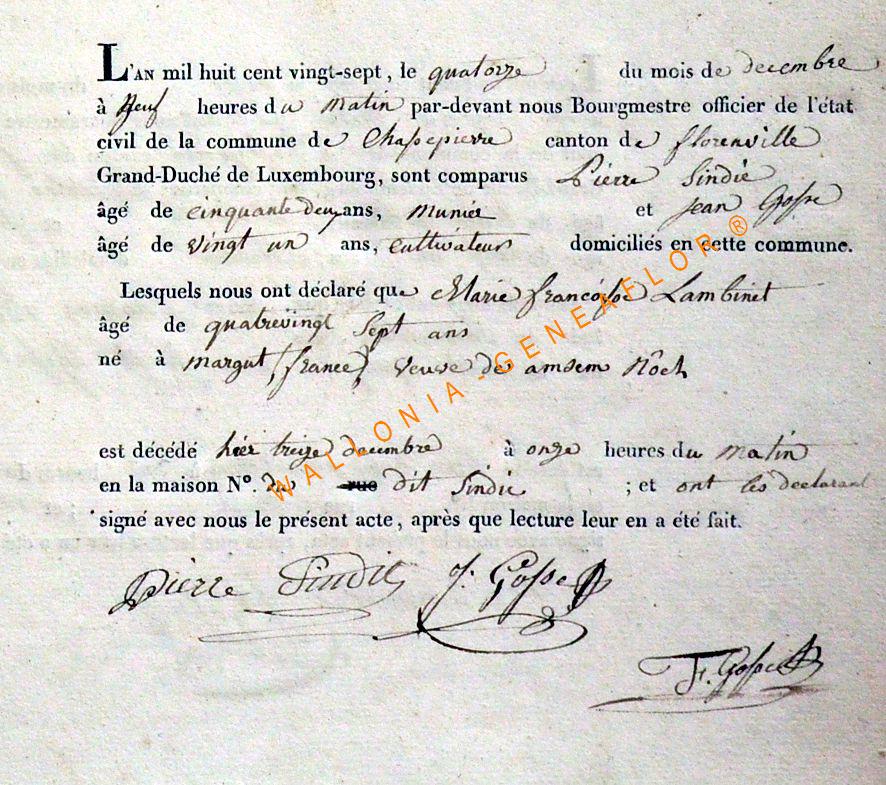 L'AN mil huit cent vingt-sept, le quatorze du mois de decembre
à Neuf heures du matin par-devant nous Bourgmestre officier de l'état
civil de la commune de Chassepierre canton de florenville
Grand-Duché de Luxembourg, sont comparus Pierre Sindic
âgé de cinquante deux ans, Munier et Jean Gosse
âgé de vingt un ans, cultivateur domiciliés en cette commune.
Lesquels nous ont déclaré que Marie françoise Lambinet
âgé de quatrevingt Sept ans
né à margut (france) veuve de Roch
est décédé hier treize decembre à onze heures du matin
en la maison Nº. du rue dit Sindic ; et ont les declarant
signé avec nous le présent acte, après que lecture leur en a été fait.
Pierre Sindic J. Gosse
F. Gosse
WALLONIA-GENEAFLOR ®